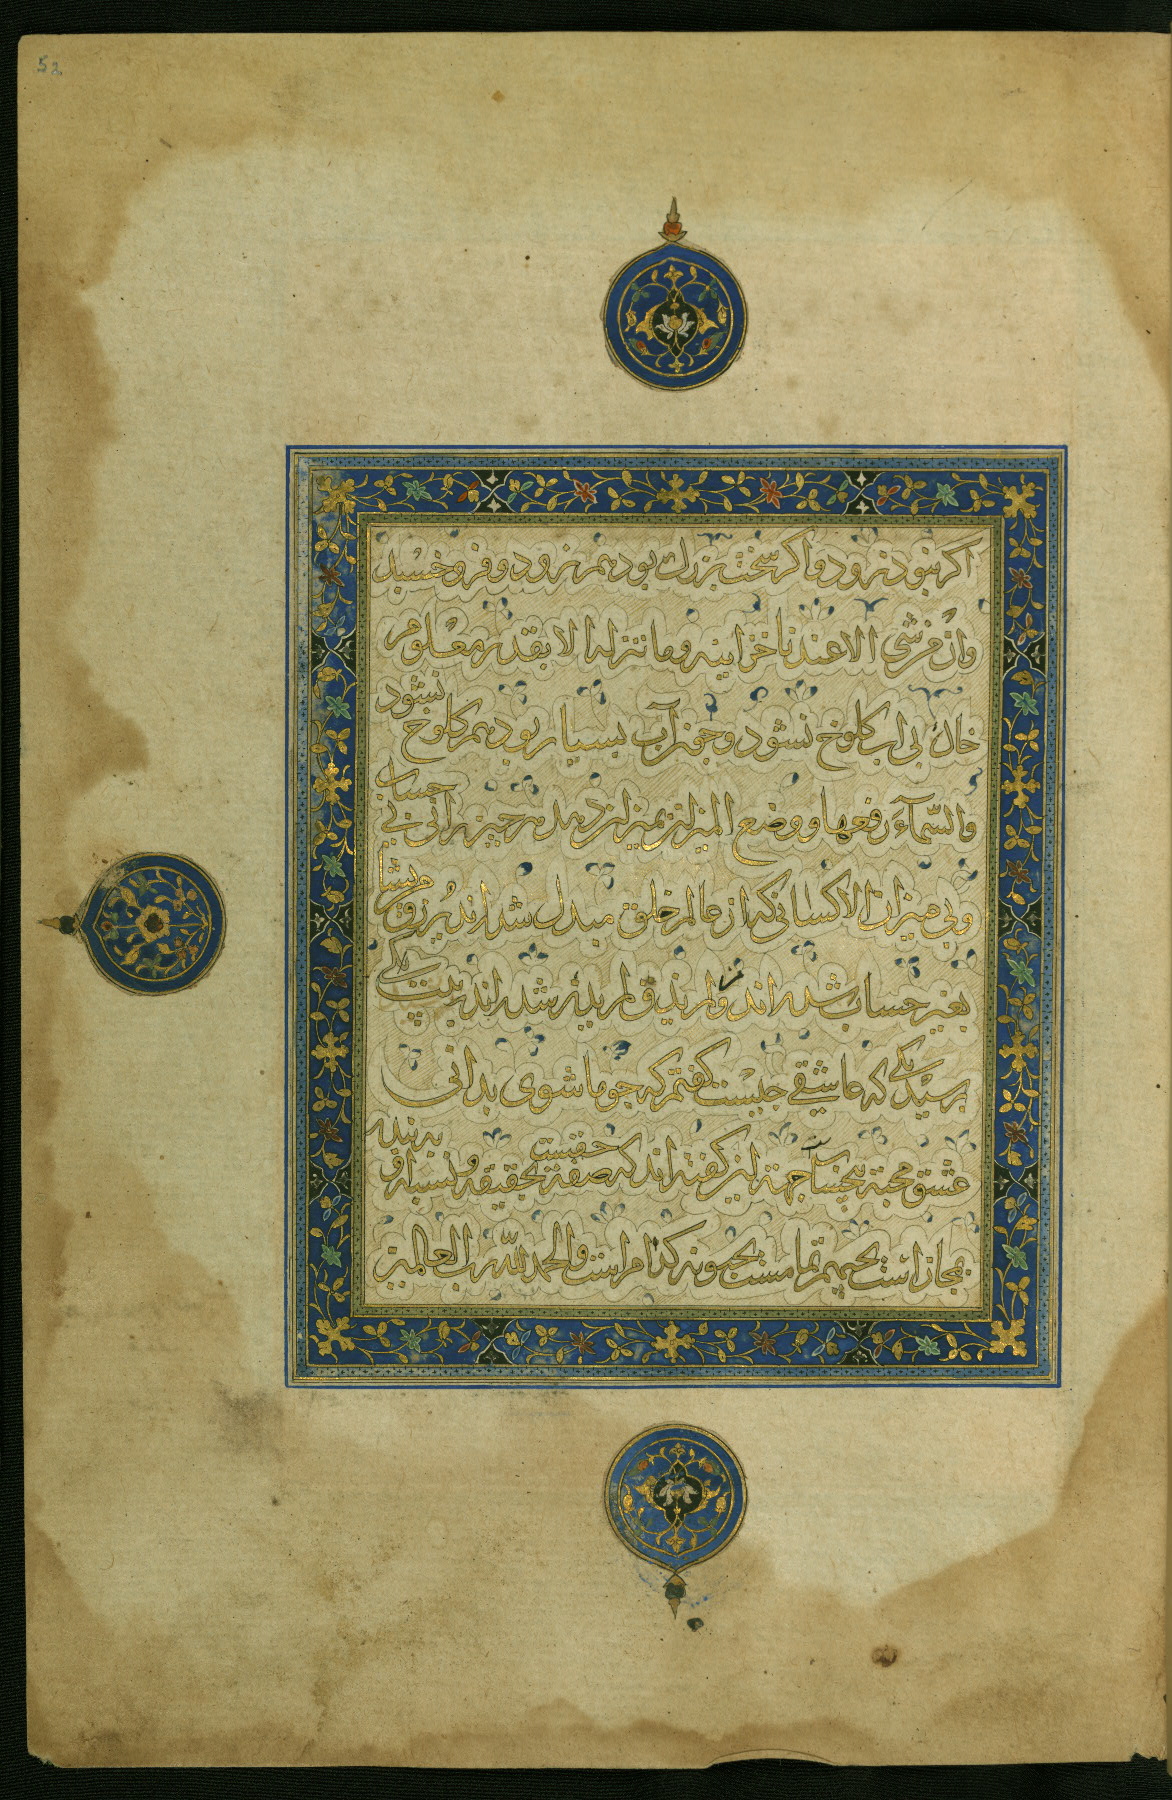 52
اكر نبود نرود واكر سخت بزرك بود هم نرود و فرو خسبد
وان من شی الا عندنا خزاینه وما ننزله الا بقدر معلوم
خاك بی اب كلوخ نشود و چون آب بسیار بود هم كلوخ نشود
والسّمآء رفعها و وضع المیزان بمیزان دهد هر چیز را نی بی حساب
و بی میزان الا كسانی كه از عالم خلق مبدل شده اند یرزق من یشا
بغیر حساب شده اند ومن لم یذق لم یدر شده اند بیت یكی
پرسید یكی كه عاشقی چیست كفتم كه چو ما شوی بدانی
عشق محبة بیحسابست جهة این كفته اند كه صفة حقست بحقیقة و نسبة او ببنده
بمجاز است یحبهم تمامست یحبونه كدامست والحمد لله رب العالمین